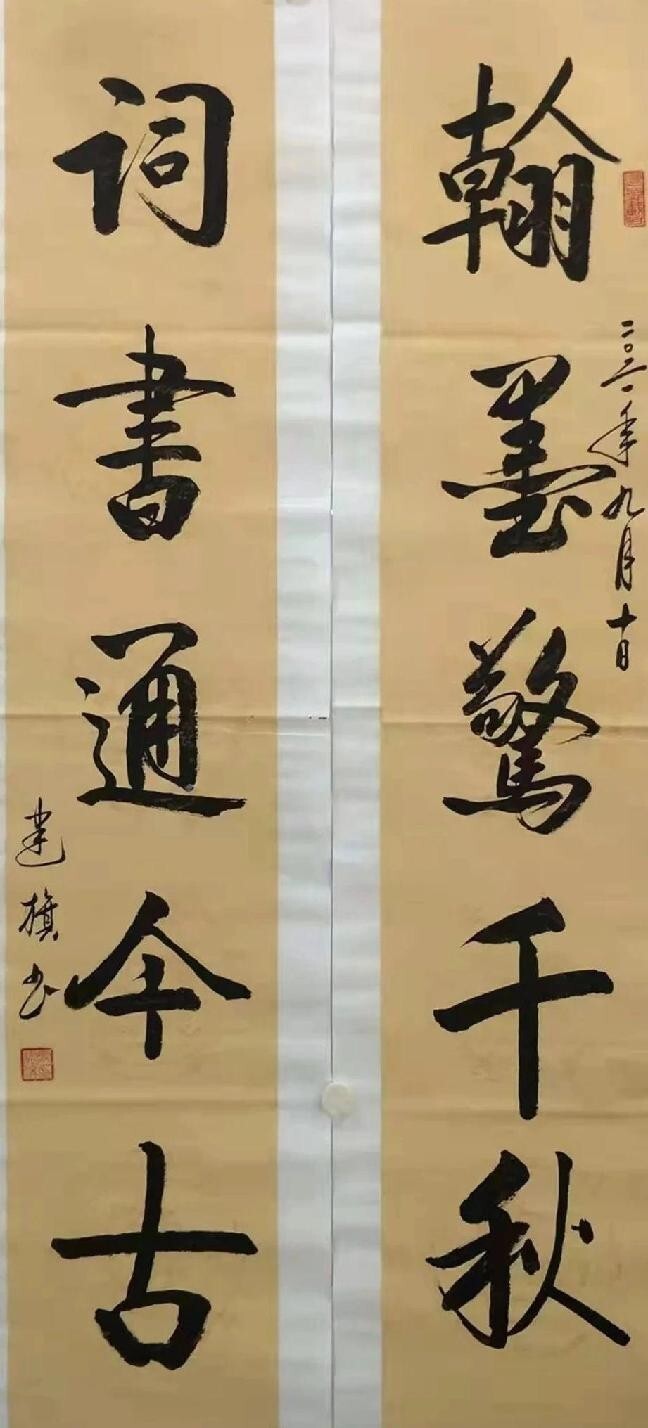 翰墨驚千秋
二〇二一年九月十日
词書通今古
建旗书